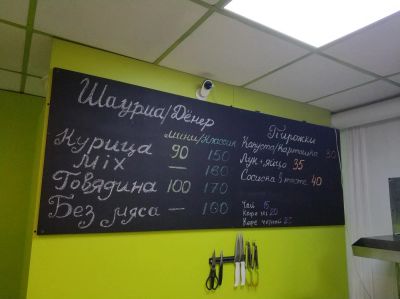 Шаурма/Дёнер
мини/классик
Курица 90 150
Mix — 160
Говядина 100 170
Без мяса — 100
Пирожки
Капуста/Картошка 30
Лук+яйцо 35
Сосиска в тесте 40
Чай 15
Кофе 20
Кофе черный 25